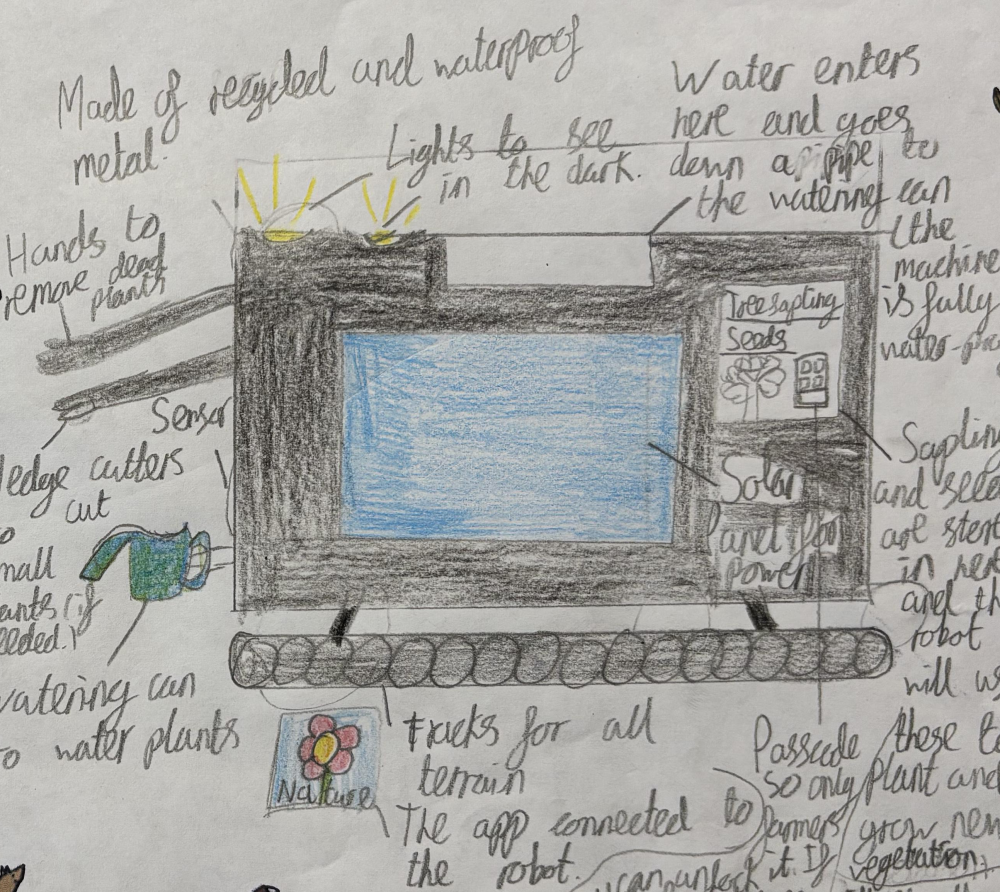 Made of recycled and waterproof
metal.
Lights to see
in the dark.
Water enters
here and goes
down a pipe to
the watering can
(the
machine
is fully
Hands to
remove dead
plants
Sensor
cutters
cut
watering can
to water plants
Treesapling
Seeds
Solar
Panel for
power
Sapling
and seed
are
in here
and th
robot
will us
these to
Plant and
grow new
vegetation.
Nature
tracks for all
terrain
The app connected to
the robot.
Passcode
so only
farmers
can unlock it. If